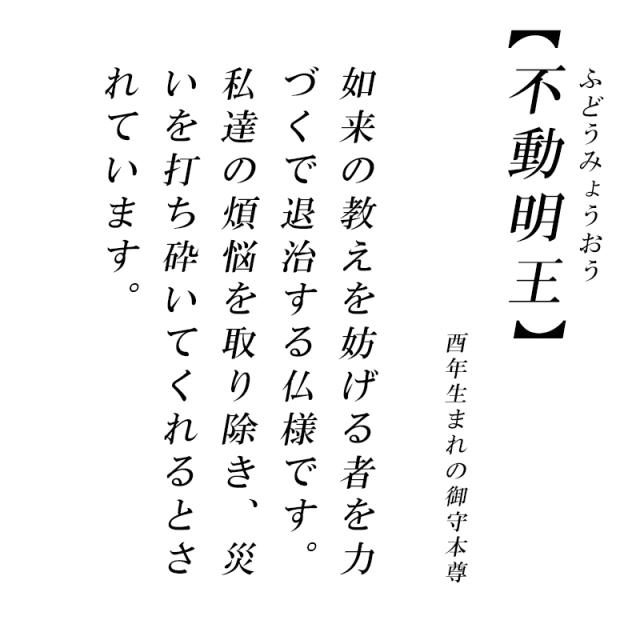 ふどうみょうおう
【不動明王】
酉年生まれの御守本尊
如来の教えを妨げる者を力
づくで退治する仏様です。
私達の煩悩を取り除き、災
いを打ち砕いてくれるとさ
れています。